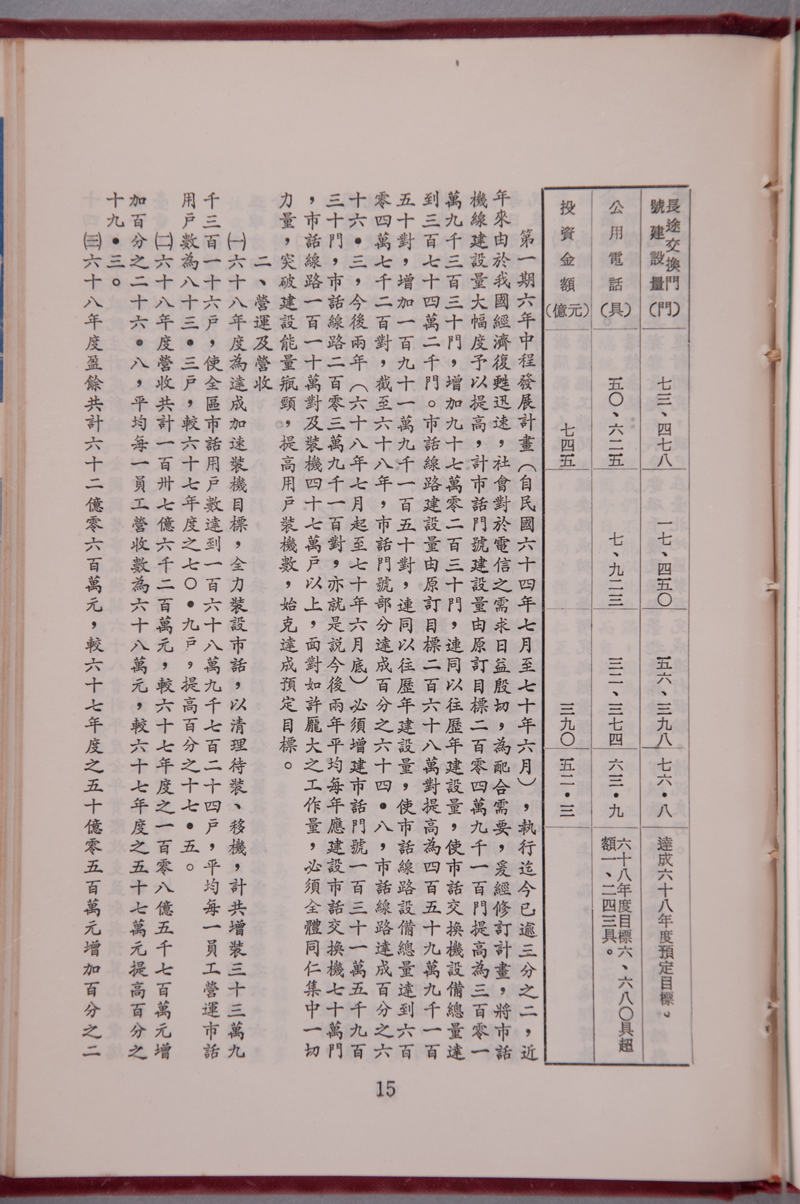 長途交換門
號建設量（門）
七三、四七八
一七、四五〇
五六、三九八
七六・八
達成六十八年度預定目標。
公用電話（具）
五〇、六二五
七、九二三
三二、三七四
六三・九
六十八年度目標六、六八〇具超
額一、二四三具。
投資金額（億元）
七四五
三九〇
五二・三
第一期六年中程發展計畫（自民國六十四年七月至七十年六月），執行迄今已逾三分之二，近
年來由於我國經濟復甦迅速，社會對於電信之需求日益殷切，為配合需要，爰經修訂計畫，將市話
機線建設量大幅度予以提高，計市話門號建設量由原訂目標二百零四萬九千一百門提高為三百零一
萬九千三百三十門，增加九十七萬零二百三十門，連同以往歷年建設量，使市話交換機設備總量達
到三百七十四萬二千門。市話線路建設量由原訂目標二百六十八萬對提高為四百五十九萬九千一百
五十對，增加一百九十一萬九千一百五十對，連同以往歷年建設量，使市話線路設備總量達到六百
零四萬七千二百對，截至六十八年，市話門號部分達成百分之六十四・八，市話線路達成百分之六
十六・三，今後兩年（六十八年七月起至七十年六月底）必須增建市話門號一百三十一萬五千九百
三十門，市話線路二百零三萬九千一百對，亦就是說今後兩年平均每年應建設市話交換機七十萬門
，市話線路一百一十萬對及裝機四十七萬戶以上，面對如許龐大之工作量，必須全體同仁集中一切
力量，突破建設能量瓶頸，提高用戶裝機數，始克達成預定目標。
二、營運及營收
㈠六十八年度為達成加速裝機目標，全力裝設市話，以清理待裝、移機，計共增裝三十三萬九
千三百一十六戶，使全區市話用戶數達到一百六十八萬九千七百二十四戶，平均每一員工營運市話
用戶數為八十三・三戶，較六十七年度之七〇・九戶，提高百分之十七・五。
㈡六十八年度營收共計一百卅七億六千二百萬元，較六十七年度之一百零八億五千七百萬元增
加百分之二十六・八，平均每一員工營收數為六十八萬元，較六十七年度之五十七萬元提高百分之
十九・三。
㈢六十八年度盈餘共計六十二億零六百萬元，較六十七年度之五十億零五百萬元增加百分之二
15